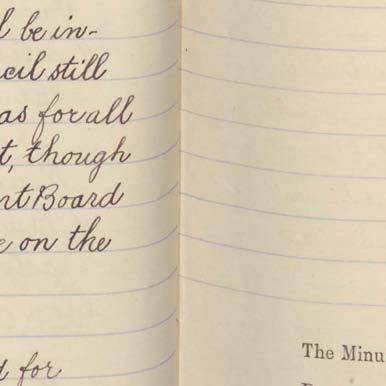 l be in-
cil still
as for all
t, though
nt Board
e on the
d for
The Minu